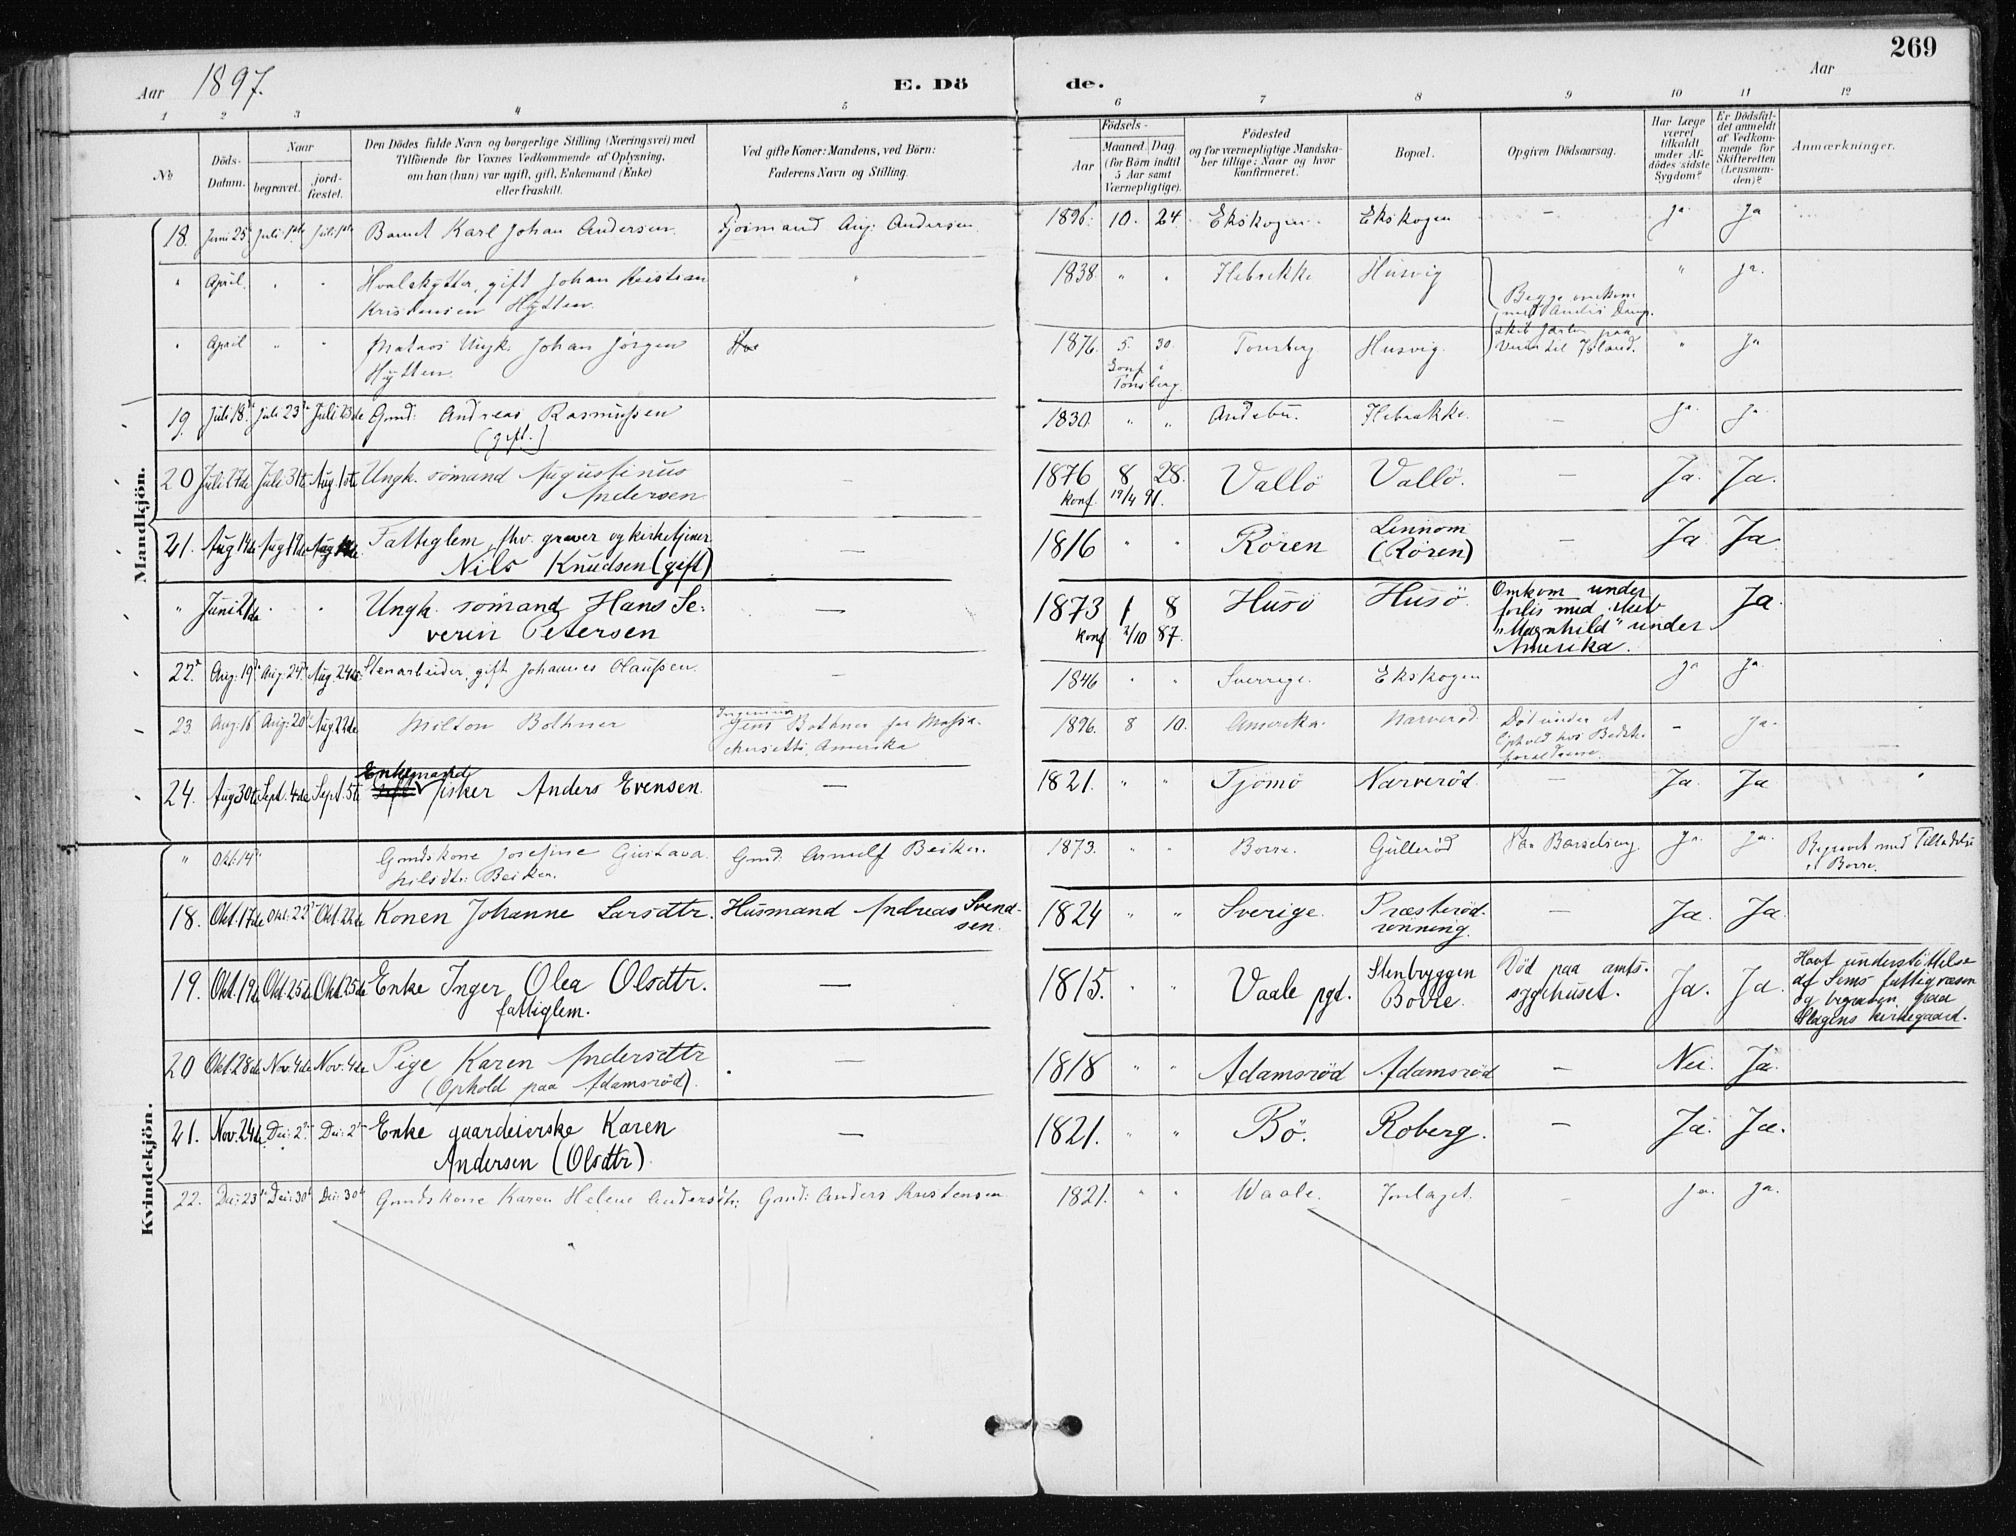 269
Aar 1897. E. Dö de. Aar
1 2 3 4 5 6 7 8 9 10 11 12
No
Döds-Datum.
Naar
begravet.
jord-fæstet.
Den Dödes fulde Navn og borgerlige Stilling (Næringsvei) med
Tilföiende for Voxnes Vedkommende af Oplysning,
om han (hun) var ugift, gift, Enkemand (Enke)
eller fraskilt.
Ved gifte Koner: Mandens, ved Börn:
Faderens Navn og Stilling.
Födsels-
Aar
Maaned. Dag
(for Börn indtil
5 Aar samt
Værnepligtige).
Födested
og for værnepligtige Mandska-
ber tillige: Naar og hvor
konfirmeret.
Bopæl.
Opgiven Dödsaarsag.
Har Læge
været
tilkaldt
under Af-
dödes sidste
Sygdom?
Er Dödsfal-
det anmeldt
af Vedkom-
mende for
Skifteretten
(Lensman-
den)?
Anmærkninger.
Mandkjön.
18. Juni 25 Juli 1ste Juli 1ste Barnet Karl Johan Andersen. Sjömand Aug. Andersen 1896. 10. 24. Ekskogen. Ekskogen — Ja Ja
" April " " Hvalskytter, gift Johan Kristian " 1838. " " Ilebrekke Husvig " ja.
Kristensen Hytten.
Begge omkom
med
" April " " Matros Ungk. Johan Jörgen 1876. 5. 30. Tönsberg Husvig. " Ja
Hytten. Konf. Tönsberg
19. Juli 18 Juli 23 Juli 23de Gmd: Andreas Rasmussen — 1830. " " Andebu. Ilebrekke. — Ja. Ja.
(gift.)
20 Juli 27de Juli 31te Aug. 1ste Ungk. sömand Augustinus — 1876 8 28. Vallö Vallö. — Ja. Ja.
Andersen konf. 19/4 91.
21. Aug 14de Aug 19de Aug 19de Fattiglem, fhv. graver og kirketjener — 1816 " " Rören Linnom — Ja Ja.
Nils Knudsen (gift) (Rören)
" Juni 21de " " Ungk. sömand Hans Se- — 1873 1 8 Husö Husö. Omkom under Ja.
verin Petersen konf 2/10 87. forlis med skib
"Magnhild" under
Amerika.
22. Aug. 19 Aug. 24 Aug. 24de Stenarbeider, gift Johannes Olaussen. — 1846 " " Sverrige. Ekskogen ja Ja.
23. Aug. 16 Aug. 20 Aug. 22de Milton Bothner Ingeniör 1896. 8 10. Amerika. Narveröd Död under et — Ja.
Jens Bothner fra Massa- Ophold hos Bedste-
chusetts, Amerika forældrene.
24. Aug 30te Sept. 4de Sept. 5te Enkemand fisker Anders Evensen. — 1821. " " Tjömö Narveröd. — Ja. Ja
Kvindekjön.
" Okt. 14 Gmdskone Josefine Gustava Gmd. Arnulf Becker. 1873. " " Borre. Gulleröd Paa Barselseng. Ja. Ja. Begravet med Tilladelse
Nilsdtr. Becker. i Borre.
18. Okt. 17de Okt. 22 Okt. 22de Konen Johanne Larsdtr. Husmand Andreas Svend- 1824 " " Sverige. Præsteröd- — Ja. Ja
sen. rönning.
19. Okt. 19de Okt. 25de Okt. 25de Enke Inger Olea Olsdtr. — 1815. Vaale pgd. Stenbryggen Död paa amts- Ja. Ja. Havt understöttelse
fattiglem. Borre. sygehuset. af Sems fattigvæsen
og begraven paa
Slagens kirkegaard.
20 Okt. 28de Nov. 4de Nov. 4de Pige Karen Andersdtr — 1818 " " Adamsröd Adamsröd — Nei. Ja.
(Ophold paa Adamsröd).
21. Nov. 24de Dec. 2 Dec. 2 Enke gaardeierske Karen — 1821. " " Bö. Roberg. — Ja. Ja.
Andersen (Olsdtr)
22. Dec. 23 Dec. 30 Dec. 30 Gmdskone Karen Helene Andersdtr. Gmd. Anders Kristensen 1821. " " Waale. — ja. ja.